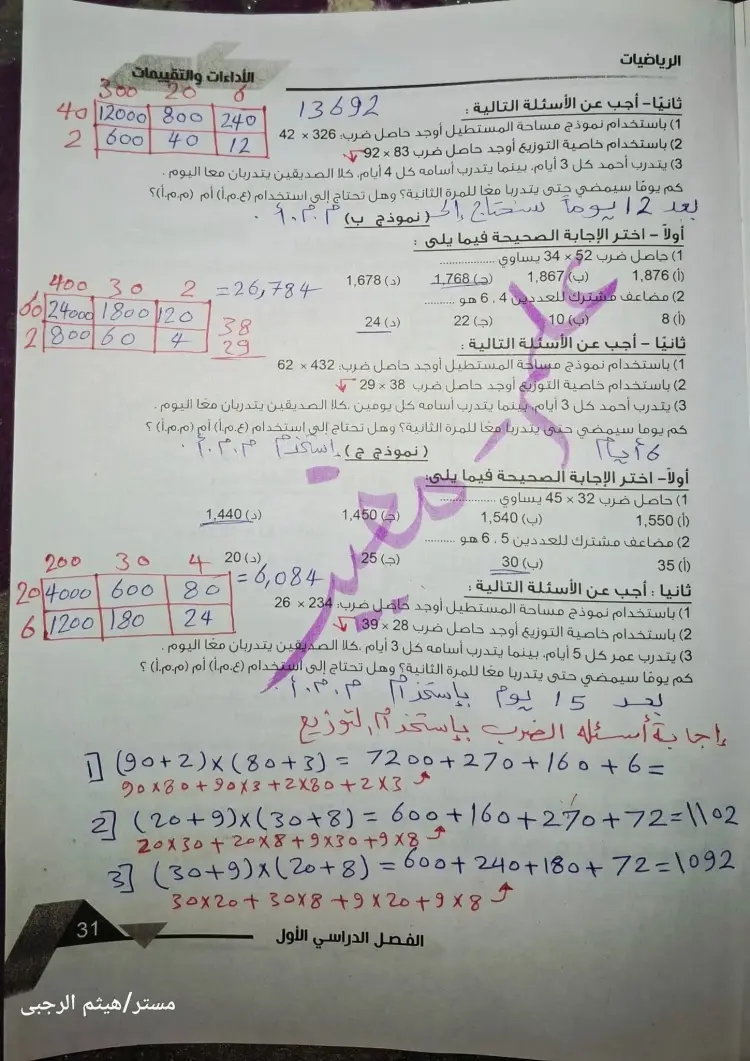 الرياضيات
الأداءات والتقييمات
ثانيًا- أجب عن الأسئلة التالية :
1) باستخدام نموذج مساحة المستطيل أوجد حاصل ضرب: 326 × 42
13692
300 20 6
40 12000 800 240
2 600 40 12
2) باستخدام خاصية التوزيع أوجد حاصل ضرب 83 × 92
3) يتدرب أحمد كل 3 أيام، بينما يتدرب أسامه كل 4 أيام، كلا الصديقين يتدربان معًا اليوم .
كم يومًا سيمضي حتى يتدربا معًا للمرة الثانية؟ وهل تحتاج إلى استخدام (ع.م.أ) أم (م.م.أ)؟
بعد 12 يوماً سنحتاج إلى م.م.أ.
( نموذج ب)
أولاً – اختر الإجابة الصحيحة فيما يلى :
1) حاصل ضرب 52 × 34 يساوي ..................
(أ) 1,876 (ب) 1,867 (جـ) 1,768 (د) 1,678
2) مضاعف مشترك للعددين 4 ، 6 هو ..........
(أ) 8 (ب) 10 (جـ) 22 (د) 24
ثانيًا – أجب عن الأسئلة التالية :
1) باستخدام نموذج مساحة المستطيل أوجد حاصل ضرب: 432 × 62
400 30 2 =26,784
60 24000 1800 120
2 800 60 4
38
29
2) باستخدام خاصية التوزيع أوجد حاصل ضرب 38 × 29
3) يتدرب أحمد كل 3 أيام، بينما يتدرب أسامه كل يومين ،كلا الصديقين يتدربان معًا اليوم .
كم يوما سيمضي حتى يتدربا معًا للمرة الثانية؟ وهل تحتاج إلى استخدام (ع.م.أ) أم (م.م.أ) ؟
6 أيام إستخدم م.م.أ.
( نموذج ج )
أولاً- اختر الإجابة الصحيحة فيما يلي:
1) حاصل ضرب 32 × 45 يساوي ..................
(أ) 1,550 (ب) 1,540 (جـ) 1,450 (د) 1,440
2) مضاعف مشترك للعددين 5 ، 6 هو ..........
(أ) 35 (ب) 30 (جـ) 25 (د) 20
ثانيا : أجب عن الأسئلة التالية :
1) باستخدام نموذج مساحة المستطيل أوجد حاصل ضرب: 234 × 26
200 30 4 =6,084
20 4000 600 80
6 1200 180 24
2) باستخدام خاصية التوزيع أوجد حاصل ضرب 28 × 39
3) يتدرب عمر كل 5 أيام، بينما يتدرب أسامه كل 3 أيام ،كلا الصديقين يتدربان معًا اليوم .
كم يومًا سيمضي حتى يتدربا معًا للمرة الثانية؟ وهل تحتاج إلى استخدام (ع.م.أ) أم (م.م.أ) ؟
بعد 15 يوم بإستخدام م.م.أ.
إجابة أسئله الضرب بإستخدام التوزيع
1] (90+2)×(80+3) = 7200+270+160+6=
90×80+90×3+2×80+2×3
2] (20+9)×(30+8) = 600+160+270+72=1102
20×30+20×8+9×30+9×8
3] (30+9)×(20+8) =600+240+180+72=1092
30×20+30×8+9×20+9×8
31
الفصل الدراسي الأول
مستر/هيثم الرجبى